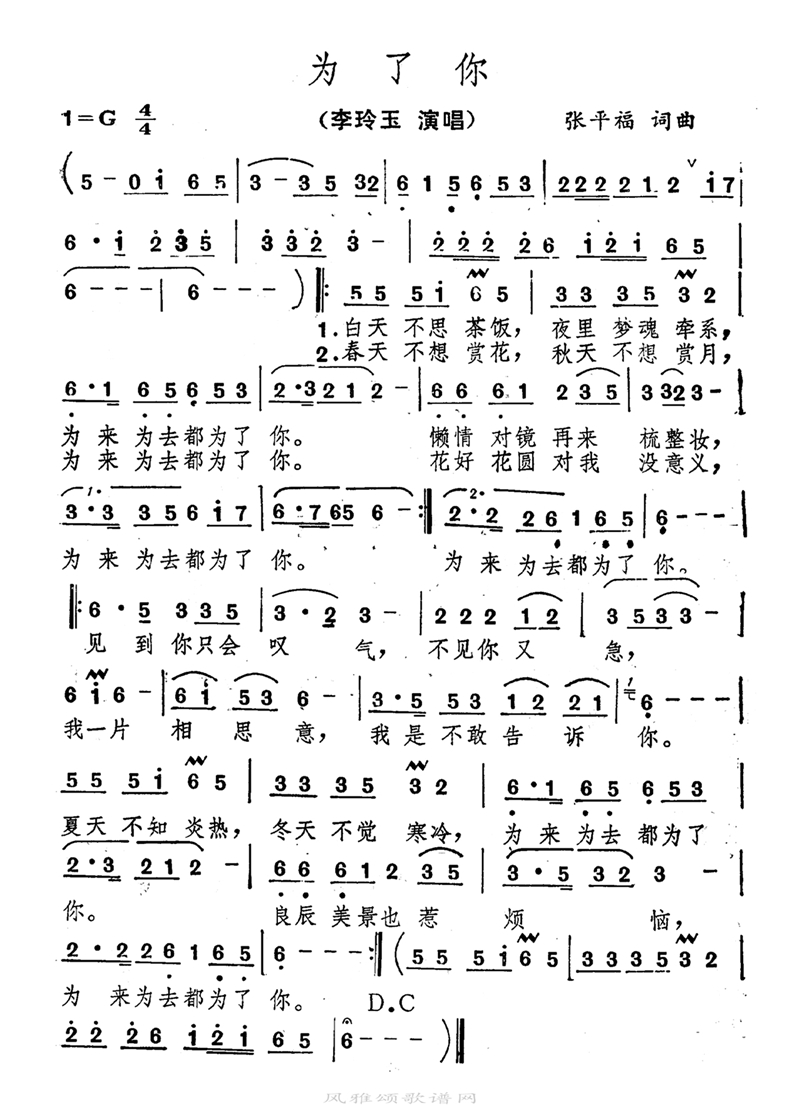 为了你
1=G 4/4 (李玲玉 演唱) 张平福 词曲
(5 - 0 i 6 5 | 3 - 3 5 3 2 | 6 1 5 6 5 3 | 2 2 2 2 1 2 i 7 |
6 · i 2 3 5 | 3 3 2 3 - | 2 2 2 2 6 i 2 i 6 5
6 - - - | 6 - - - ) ‖: 5 5 5 i 6 5 | 3 3 3 5 3 2 |
1.白天 不思 茶饭, 夜里 梦魂 牵系,
2.春天 不想 赏花, 秋天 不想 赏月,
6 · 1 6 5 6 5 3 | 2 · 3 2 1 2 - | 6 6 6 1 2 3 5 | 3 3 2 3 - |
为 来 为去都为了 你。 懒情 对镜 再来 梳整妆,
为 来 为去都为了 你。 花好 花圆 对我 没意义,
1.
3 · 3 3 5 6 i 7 | 6 · 7 6 5 6 - :‖ 2. 2 · 2 2 6 1 6 5 | 6 - - - |
为 来 为去都为了 你。 为 来 为去都为了 你。
‖: 6 · 5 3 3 5 | 3 · 2 3 - | 2 2 2 1 2 | 3 5 3 3 - |
见 到 你只会 叹 气, 不见你 又 急,
6 i 6 - | 6 i 5 3 6 - | 3 · 5 5 3 1 2 2 1 | 6 - - - |
我一片 相 思 意, 我 是 不敢 告 诉 你。
5 5 5 i 6 5 | 3 3 3 5 3 2 | 6 · 1 6 5 6 5 3
夏天 不知 炎热, 冬天 不觉 寒冷, 为 来 为去 都为了
2 · 3 2 1 2 - | 6 6 6 1 2 3 5 | 3 · 5 3 2 3 -
你。 良辰 美景也 惹 烦 恼,
2 · 2 2 6 1 6 5 | 6 - - - :‖ (5 5 5 i 6 5 | 3 3 3 5 3 2 |
为 来为去都为了 你。 D.C
2 2 2 6 i 2 i 6 5 | 6 - - - )‖
风雅颂歌谱网